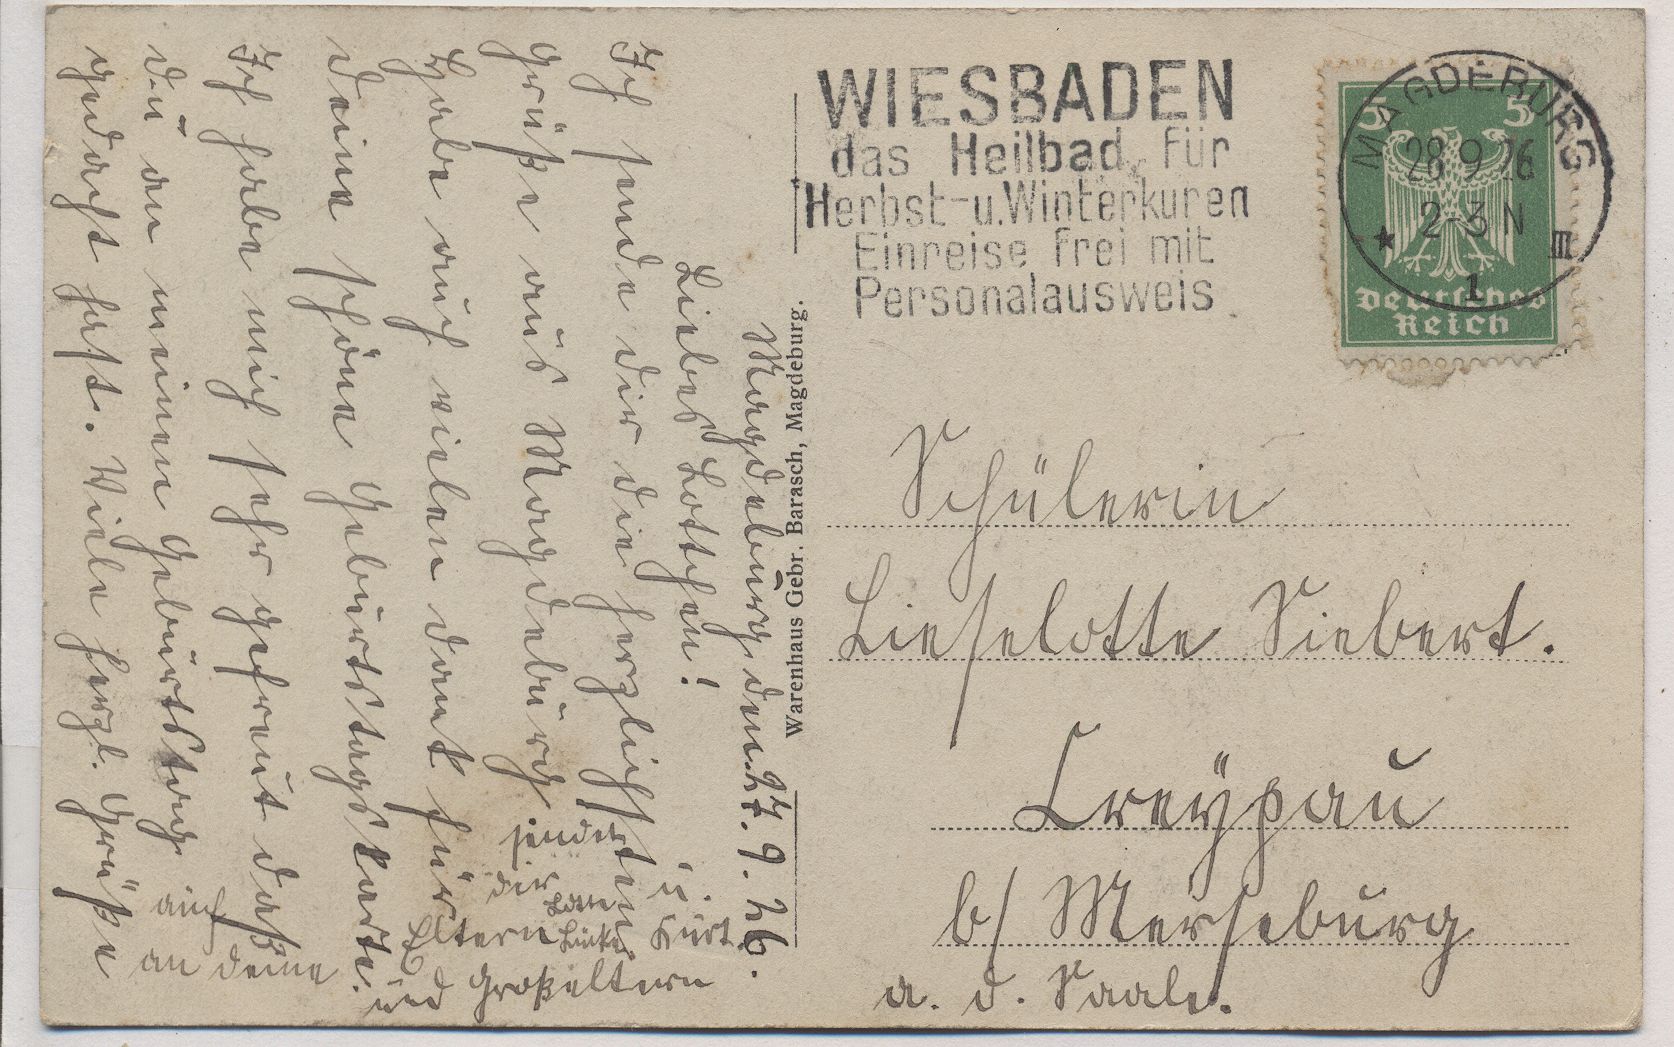 Magdeburg, den 27.9.26.
Liebes Lottchen!
Ich sende dir die herzlichsten
Grüße aus Magdeburg
Habe auch vielen dank für
deine schöne Geburtstagskarte.
Ich habe mich sehr gefreut daß
du an meinen Geburtstag
gedacht hast. Viele herzl. Grüße
sendet
dir Lotte u.
Kurt
auch
an deine Eltern
und Großeltern
Warenhaus Gebr. Barasch, Magdeburg.
WIESBADEN
das Heilbad für
Herbst- u. Winterkuren
Einreise frei mit
Personalausweis
MAGDEBURG
28.9.26
2-3 N
* 1 III
5 5
Deutsches
Reich
Schülerin
Lieselotte Siebert.
Creypau
b/ Merseburg
a. d. Saale.